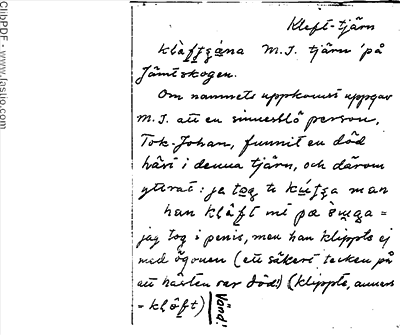 Kleft-tjärn
klàftgána M.I. tjärn på
Jämtskogen.
Om namnets uppkomst uppgav
M.I. att en sinnesslö person,
Tok-Johan, funnit en död
häst i denna tjärn, och därom
yttrat: ja tog te man
han klåft int pa =
jag tog i penis, men han klippte ej
med ögonen (ett säkert tecken på
att hästen var död!) (klippte, annars
= klåft) Vänd!
ClibPDF - www.fastio.com